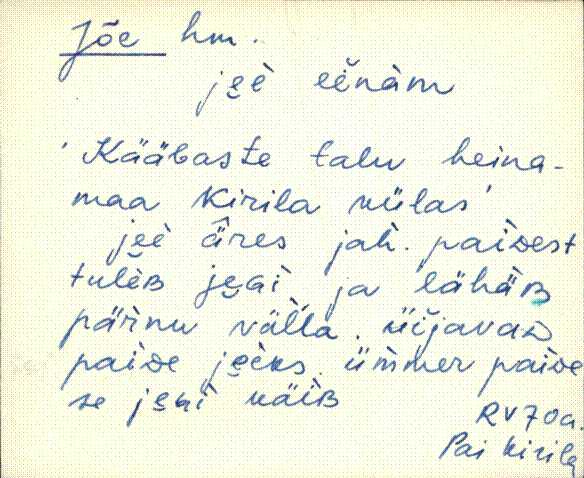 Jõe hm.
jeè̮ eènàm
'Kääbaste talu heina-
maa Kirila külas'
jeè̮ äres jah. paiᴅest
tulèʙ je̮gì ja lähäʙ
pärnu välla. üijavaᴅ
paiᴅe jeèks. ümmer paiᴅe
se je̮gì käiʙ
RV 70a.
Pai Kirila